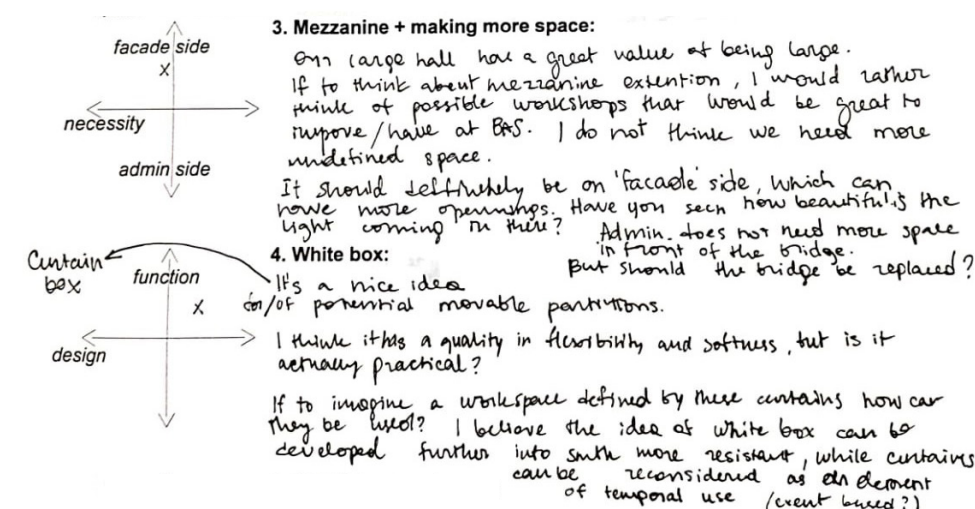 facade side
X
necessity
admin side
3. Mezzanine + making more space:
Our large hall have a great value of being large.
If to think about mezzanine extention, I would rather
think of possible workshops that would be great to
impove/have at BAS. I do not think we need more
undefined space.
It should deffinetely be on 'facade' side, which can
have more opennings. Have you seen how beautiful is the
light coming in there?
Admin. does not need more space
in front of the bridge.
But should the bridge be replaced?
Curtain
box
function
X
design
4. White box:
It's a nice idea
for/of potential movable partitions.
I think it has a quality in flexibility and softness, but is it
actually practical?
If to imagine a workspace defined by these curtains how can
they be used? I believe the idea of white box can be
developed further into smth more resistant, while curtains
can be reconsidered as an element
of temporal use (event based?)